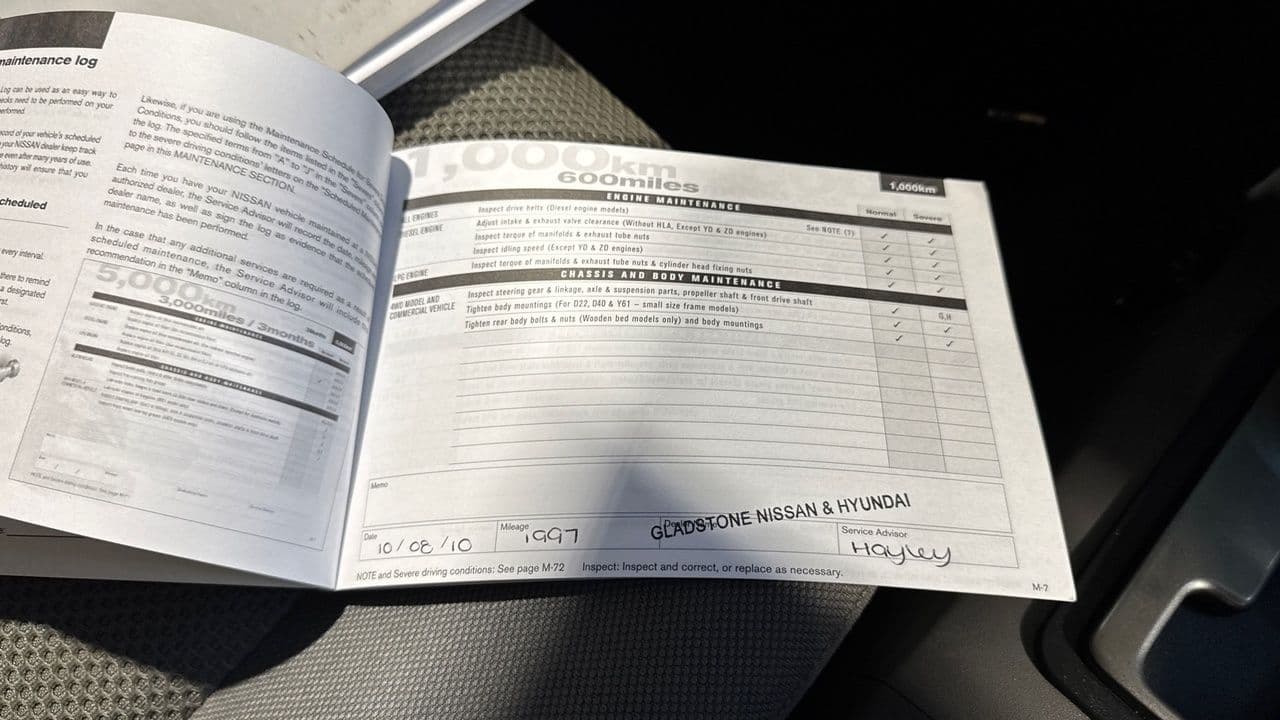 maintenance log
Log can be used as an easy way to
need to be performed on your
performed.
record of your vehicle's scheduled
your NISSAN dealer keep track
even after many years of use.
history will ensure that you
scheduled
every interval.
there to remind
a designated
Likewise, if you are using the Maintenance Schedule for
Conditions, you should follow the items listed in the
the log. The specified terms from "A" to "J" in the
to the severe driving conditions' letters on the "Scheduled
page in this MAINTENANCE SECTION.
Each time you have your NISSAN vehicle maintained at
authorized dealer, the Service Advisor will record the
dealer name, as well as sign the log as evidence that the
maintenance has been performed.
In the case that any additional services are required as a
scheduled maintenance, the Service Advisor will include
recommendation in the "Memo" column in the log.
5,000km
3,000miles / 3months
ENGINE MAINTENANCE
CHASSIS AND BODY MAINTENANCE
1,000km
600miles
1,000km
ENGINE MAINTENANCE
Normal Severe
ENGINES Inspect drive belts (Diesel engine models) ✓ ✓
DIESEL ENGINE Adjust intake & exhaust valve clearance (Without HLA, Except YD & ZD engines) See NOTE (1) ✓ ✓
Inspect torque of manifolds & exhaust tube nuts ✓ ✓
Inspect idling speed (Except YD & ZD engines) ✓ ✓
LPG ENGINE Inspect torque of manifolds & exhaust tube nuts & cylinder head fixing nuts ✓ ✓
CHASSIS AND BODY MAINTENANCE
4WD MODEL AND
COMMERCIAL VEHICLE
Inspect steering gear & linkage, axle & suspension parts, propeller shaft & front drive shaft G,H
Tighten body mountings (For D22, D40 & Y61 – small size frame models) ✓ ✓
Tighten rear body bolts & nuts (Wooden bed models only) and body mountings ✓ ✓
Memo
Date
10/08/10
Mileage
1997
GLADSTONE NISSAN & HYUNDAI
Service Advisor
Hayley
NOTE and Severe driving conditions: See page M-72 Inspect: Inspect and correct, or replace as necessary.
M-7